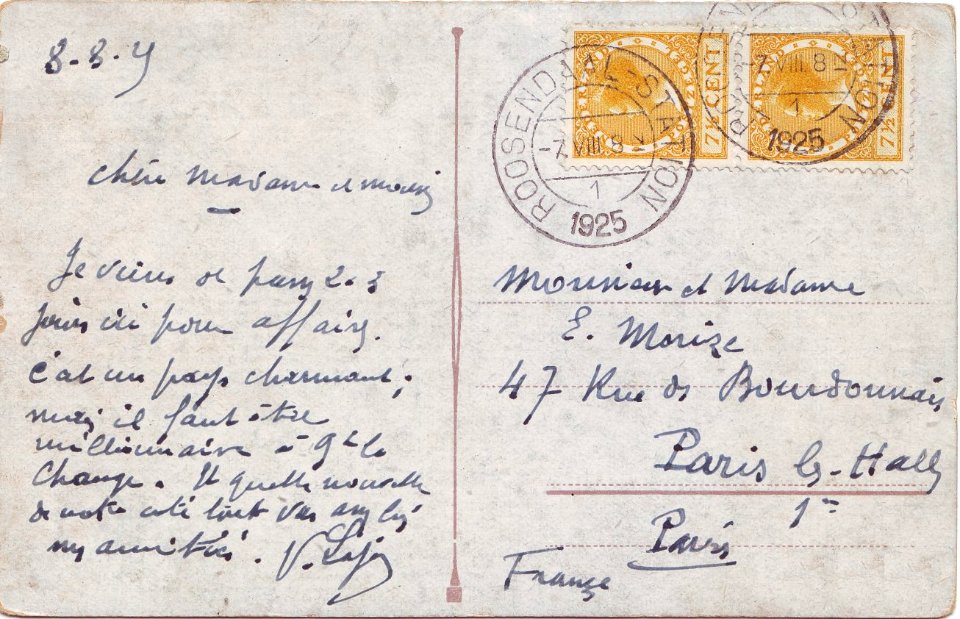 8-8-
chère Madame et
Je viens de passer 2-3
jours ici pour affaires.
c'est un pays charmant,
mais il faut être
millionnaire à le
change. Et quelle nouvelle
de votre côté tout
mes amitiés. V.
7½ CENT
7½ CENT
ROOSENDAAL-STATION
-7.VIII.8
1
1925
ROOSENDAAL-STATION
-7.VIII.8
1
1925
Monsieur et Madame
E. Morize
47 Rue des Bourdonnais
Paris les-Halles
1er
Paris
France